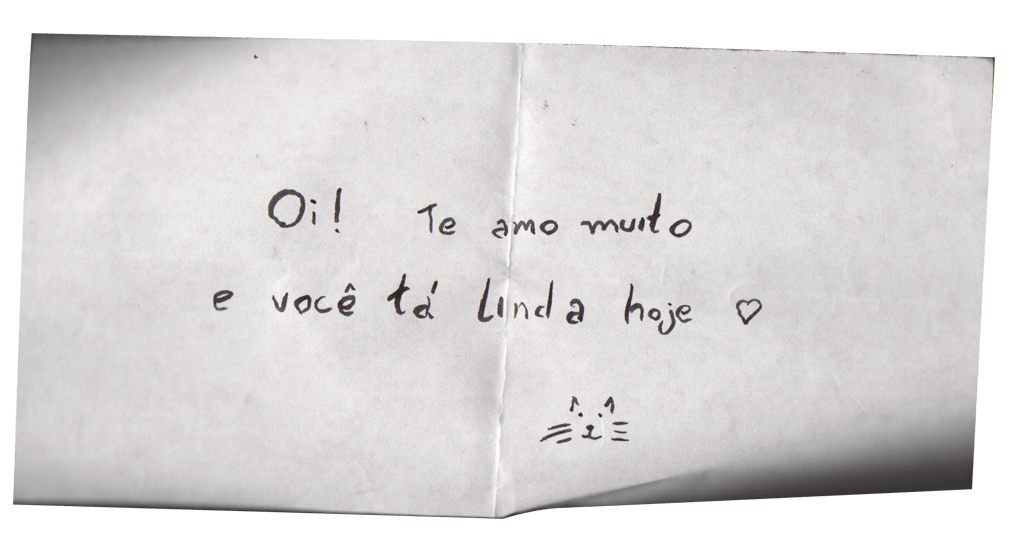 Oi! Te amo muito
e você tá linda hoje ♡